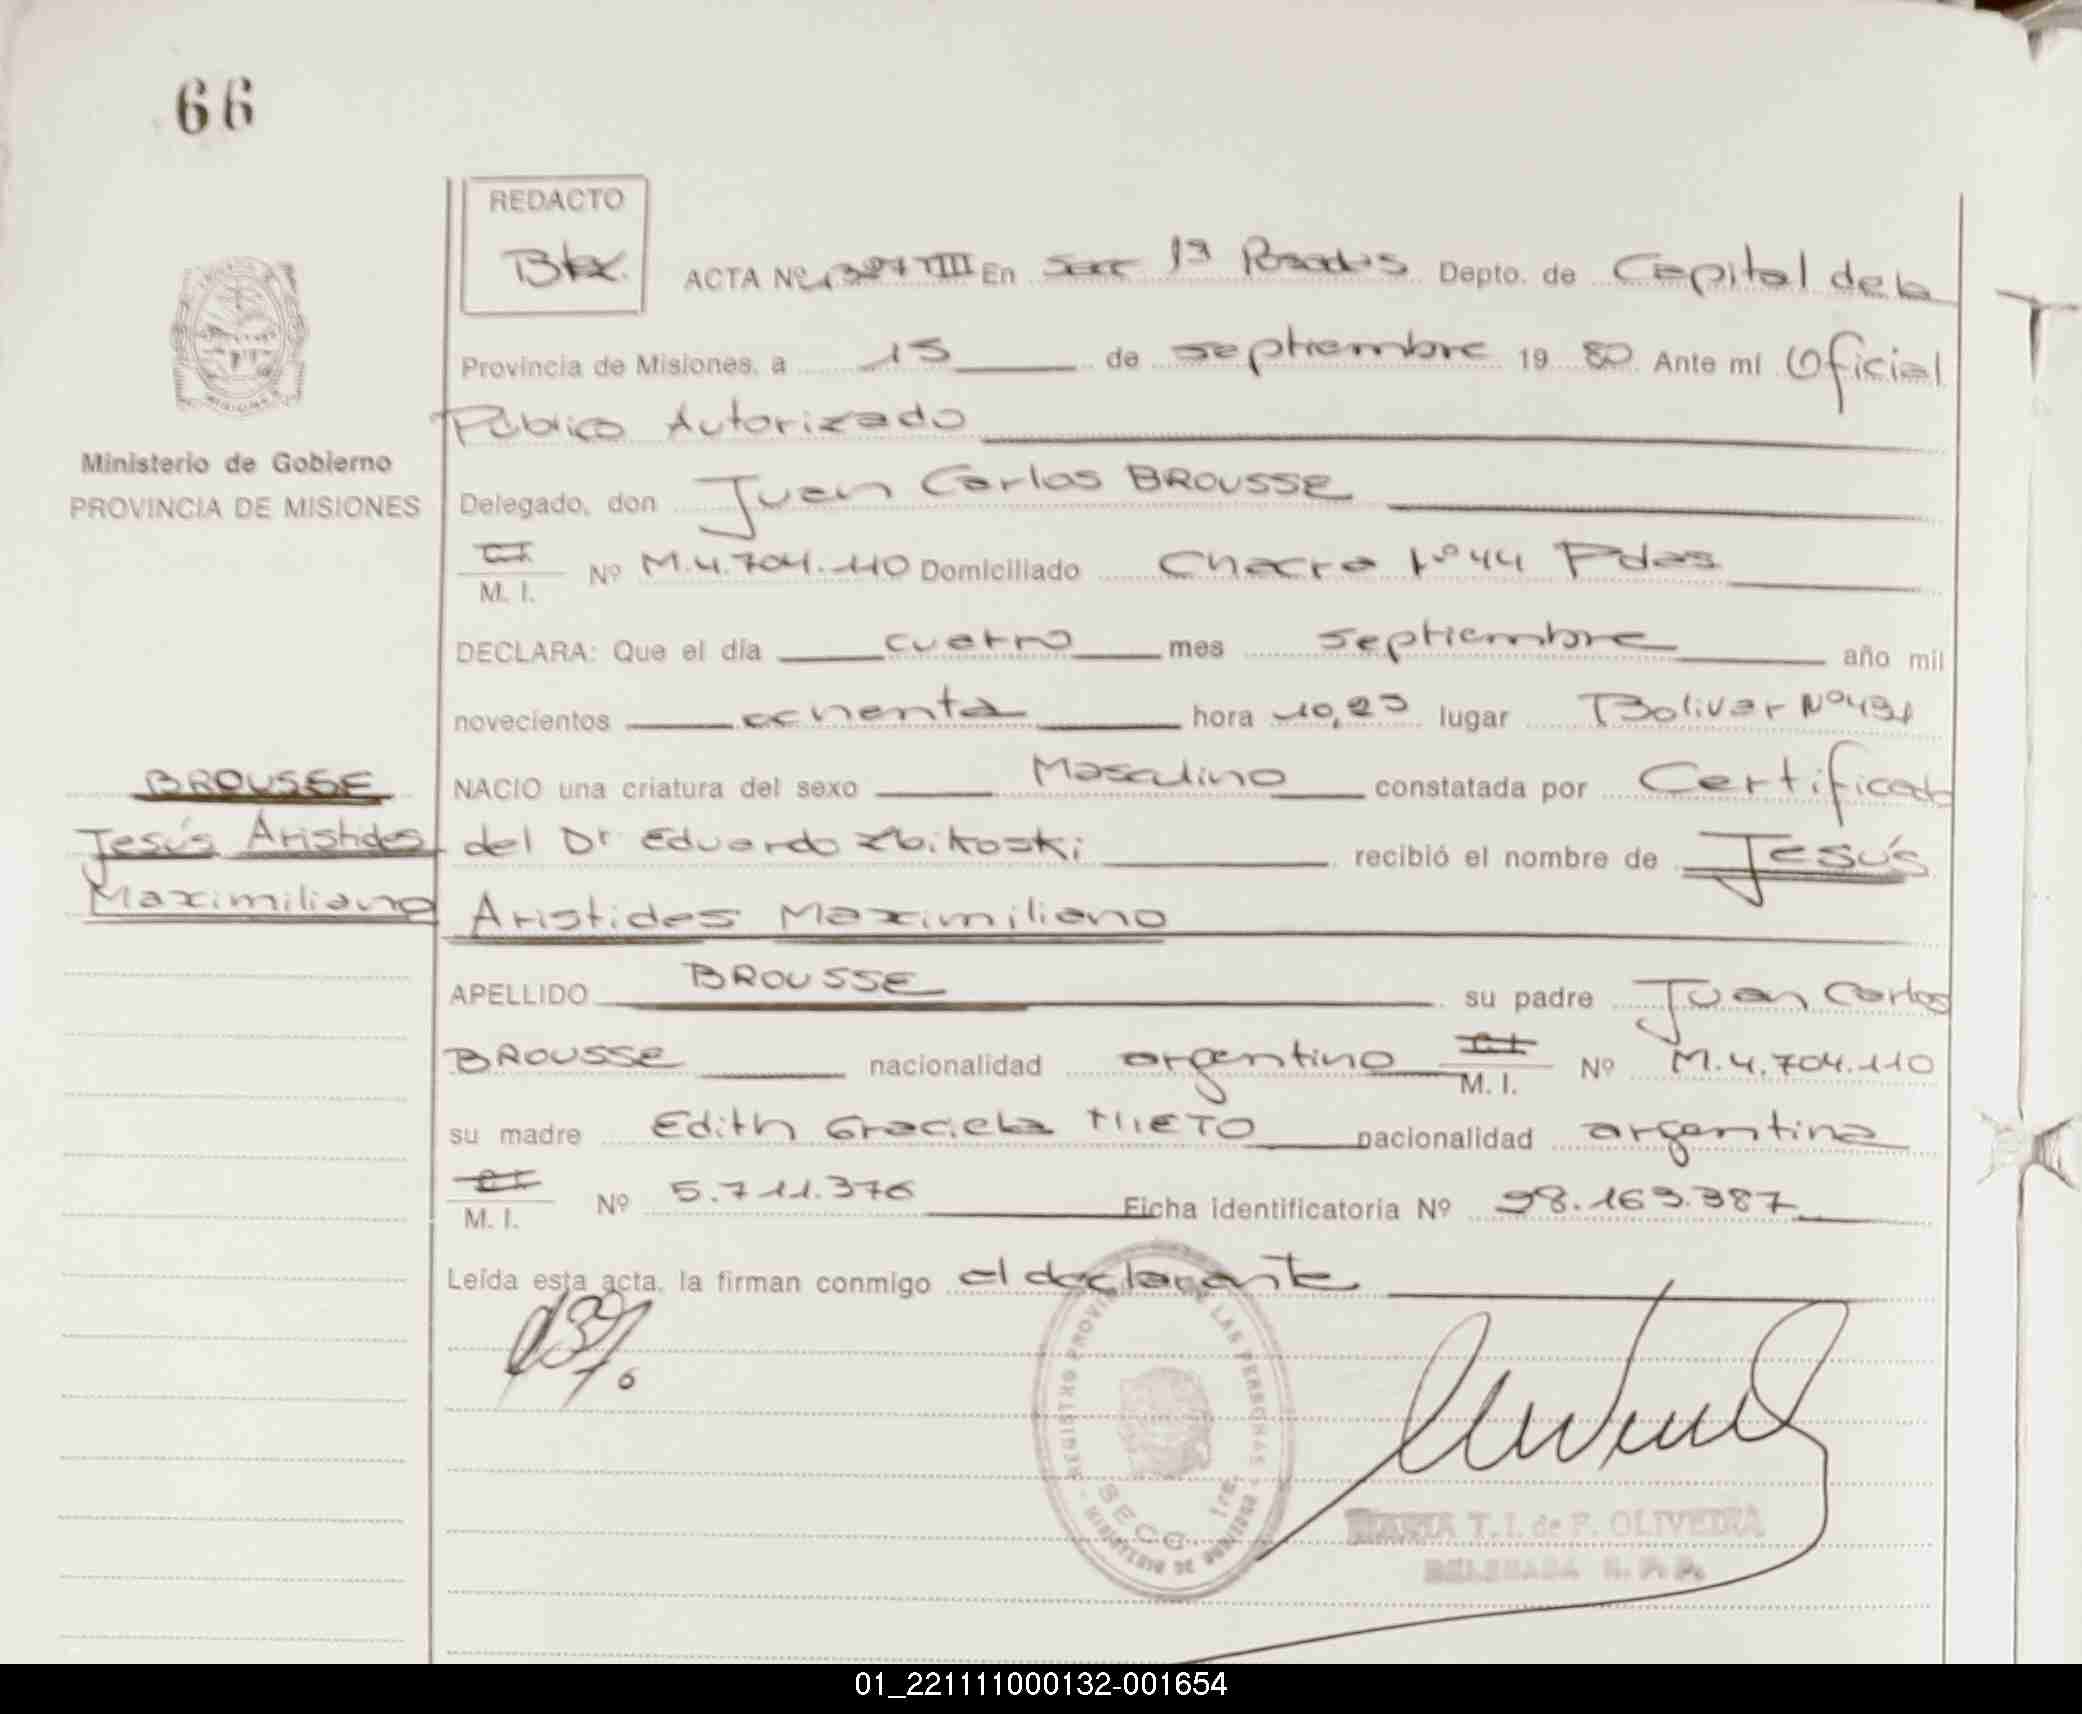 66
REDACTO
ACTA Nº VIII En Secc 1ª Posadas Depto. de Capital de la
Provincia de Misiones, a 15 de septiembre 19 80 Ante mí Oficial
Público Autorizado
Ministerio de Gobierno
PROVINCIA DE MISIONES
Delegado, don Juan Carlos BROUSSE
C.I.
M. I. Nº M.4.704.110 Domiciliado Chacra Nº 44 Pdas
DECLARA: Que el día cuatro mes septiembre año mil
novecientos ochenta hora 10,25 lugar Bolivar Nº 431
BROUSSE
Jesús Aristides
Maximiliano
NACIO una criatura del sexo Masculino constatada por Certificado
del Dr Eduardo Zbikoski recibió el nombre de Jesús
Aristides Maximiliano
APELLIDO BROUSSE su padre Juan Carlos
BROUSSE nacionalidad argentino C.I.
M. I. Nº M.4.704.110
su madre Edith Graciela NIETO nacionalidad argentina
C.I.
M. I. Nº 5.711.376 Ficha identificatoria Nº 98.163.387
Leída esta acta, la firman conmigo el declarante
REGISTRO PROVINCIAL DE LAS PERSONAS
MINISTERIO DE GOBIERNO
SECC. 1ra.
MARIA T. I. de F. OLIVEIRA
DELEGADA R. P. P.
01_221111000132-001654